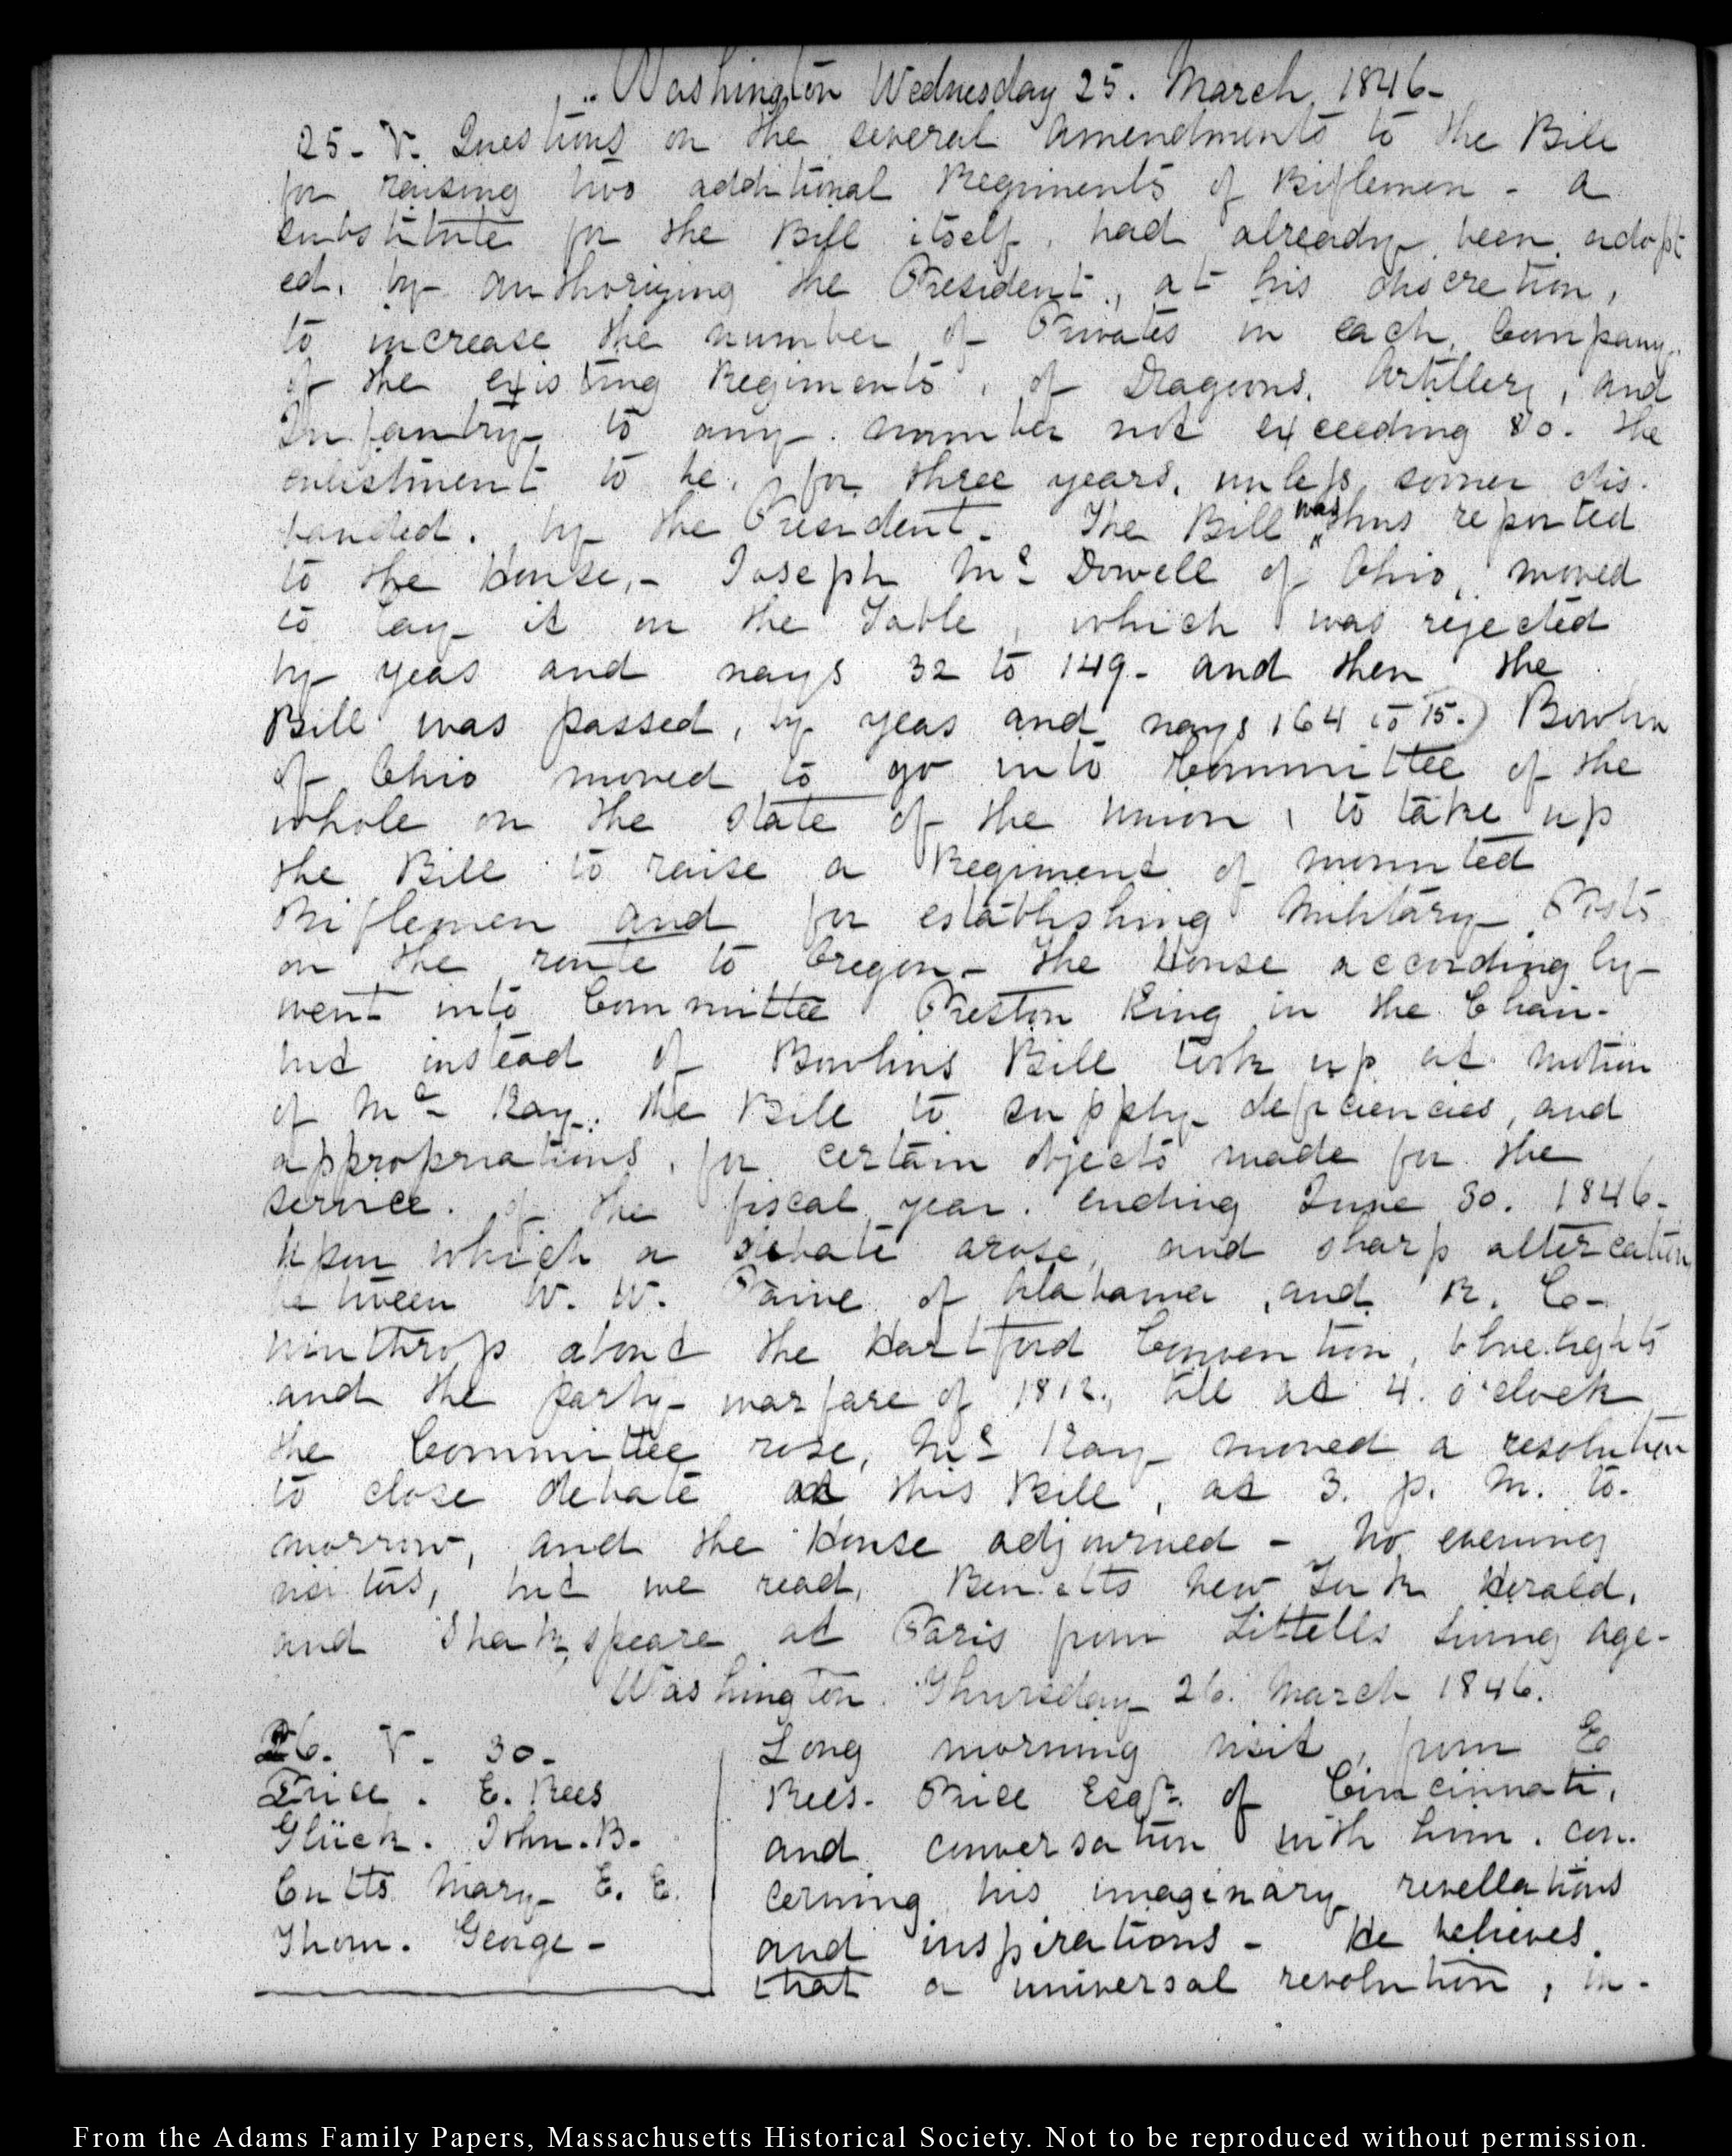 Washington Wednesday 25. March 1846-
25- V. Questions on the several amendments to the Bill
for raising two additional Regiments of Riflemen - a
substitute for the Bill itself, had already been adopt
ed, by authorizing the President, at his discretion,
to increase the number of Privates in each Company
of the existing Regiments, of Dragoons, Artillery, and
Infantry to any number not exceeding 80. the
enlistment to be, for three years, unless sooner dis-
banded, by the President. The Bill was thus reported
to the House,- Joseph Mc Dowell of Ohio, moved
to lay it on the Table, which was rejected
by yeas and nays 32 to 149- and then the
Bill was passed, by yeas and nays 164 to 15.) Bowlin
of Ohio moved to go into Committee of the
whole on the state of the Union, to take up
the Bill to raise a Regiment of mounted
Riflemen and for establishing Military Posts
on the route to Oregon- The House accordingly
went into Committee Preston King in the Chair-
but instead of Bowlins Bill took up at motion
of Mc Kay, the Bill to supply deficiencies, and
appropriations, for certain objects made for the
service of the fiscal year ending June 30. 1846-
Upon which a debate arose, and sharp altercation
between W. W. Paine of Alabama, and R. C-
Winthrop about the Hartford Convention, blue lights
and the party warfare of 1812, till at 4. o'clock
the Committee rose, Mc Kay moved a resolution
to close debate on this Bill, at 3. p. m. to-
morrow, and the House adjourned - No evening
visitors, but we read, Bennetts New York Herald,
and Shakspeare at Paris from Littells Living age-
Washington. Thursday 26. March 1846.
26. V. 30-
Price. E. Rees
Glück. John. B.
Cutts Mary E. E.
Thom. George-
Long morning visit, from E
Rees- Price Esqr. of Cincinnati,
and conversation with him, con-
cerning his imaginary revellations
and inspirations - He believes
that a universal revolution, in-
From the Adams Family Papers, Massachusetts Historical Society. Not to be reproduced without permission.